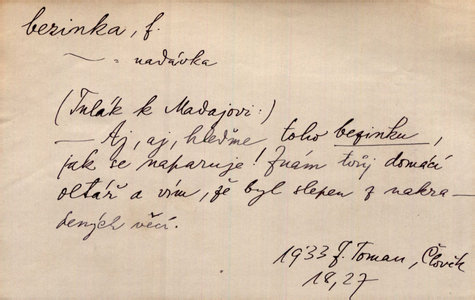 bezinka, f.
~ = nadávka
(Tulák k Madajovi:)
— Aj, aj, hleďme toho bezinku,
jak se naparuje! Znám tvůj domácí
oltář a vím, že byl slepen z nakra-
dených věcí.
1933 J. Toman, Člověk
18,27